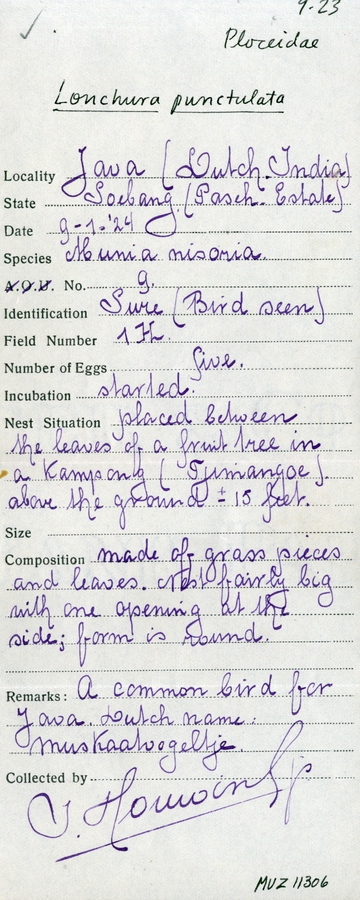 9-23
Ploceidae
Lonchura punctulata
Locality Java (Dutch. India)
State Soebang (Pasch. Estate)
Date 9-1-'24
Species Munia nisoria
A.O.U. No. 9.
Identification Sure (Bird seen)
Field Number 1 H.
Number of Eggs five.
Incubation started.
Nest Situation placed between
the leaves of a fruit tree in
a Kampong (Tjimangoe)
above the ground ± 15 feet.
Size
Composition made of grass pieces
and leaves. Nest fairly big
with one opening at the
side; form is round.
Remarks: A common bird for
Java. Dutch name:
muskaatvogeltje.
Collected by
MUZ 11306